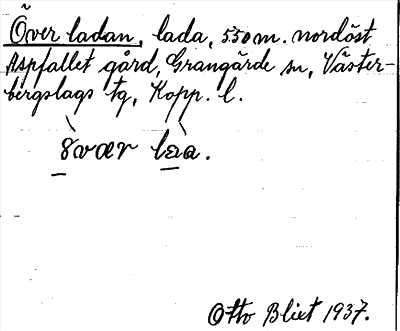 Över ladan, lada, 550 m. nordöst
Aspfallet gård, Grangärde sn, Väster-
bergslags tg, Kopp. l.
övær laa.
Otto Blixt 1937.